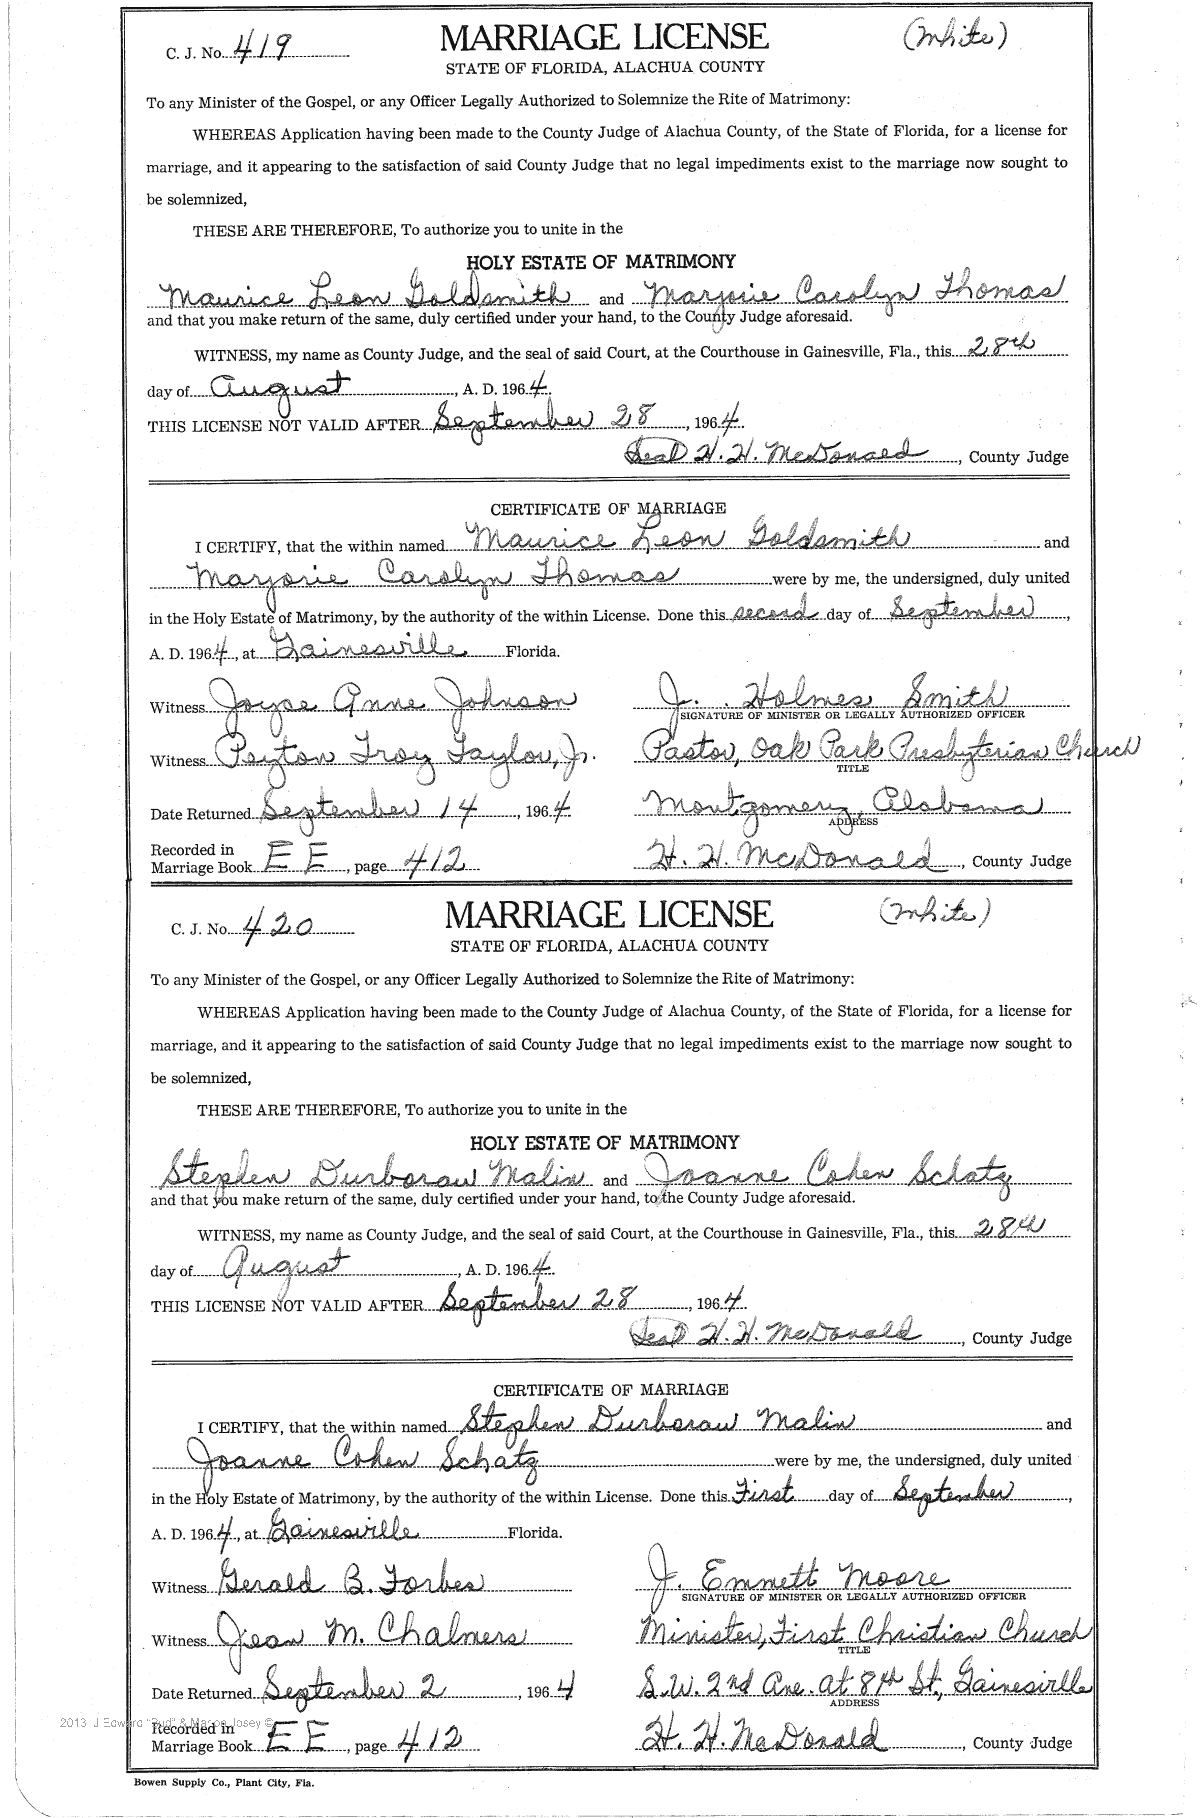 C. J. No. 419
MARRIAGE LICENSE
(White)
STATE OF FLORIDA, ALACHUA COUNTY
To any Minister of the Gospel, or any Officer Legally Authorized to Solemnize the Rite of Matrimony:
WHEREAS Application having been made to the County Judge of Alachua County, of the State of Florida, for a license for
marriage, and it appearing to the satisfaction of said County Judge that no legal impediments exist to the marriage now sought to
be solemnized,
THESE ARE THEREFORE, To authorize you to unite in the
HOLY ESTATE OF MATRIMONY
Maurice Leon Goldsmith and Marjorie Carolyn Thomas
and that you make return of the same, duly certified under your hand, to the County Judge aforesaid.
WITNESS, my name as County Judge, and the seal of said Court, at the Courthouse in Gainesville, Fla., this 28th
day of August, A. D. 1964.
THIS LICENSE NOT VALID AFTER September 28, 1964.
Seal H. H. McDonald, County Judge
CERTIFICATE OF MARRIAGE
I CERTIFY, that the within named Maurice Leon Goldsmith and
Marjorie Carolyn Thomas were by me, the undersigned, duly united
in the Holy Estate of Matrimony, by the authority of the within License. Done this second day of September,
A. D. 1964, at Gainesville Florida.
Witness Joyce Anne Johnson J. Holmes Smith
SIGNATURE OF MINISTER OR LEGALLY AUTHORIZED OFFICER
Witness Peyton Troy Taylor, Jr. Pastor, Oak Park Presbyterian Church
TITLE
Date Returned September 14, 1964. Montgomery, Alabama
ADDRESS
Recorded in
Marriage Book EE, page 412 H. H. McDonald, County Judge
C. J. No. 420
MARRIAGE LICENSE
(White)
STATE OF FLORIDA, ALACHUA COUNTY
To any Minister of the Gospel, or any Officer Legally Authorized to Solemnize the Rite of Matrimony:
WHEREAS Application having been made to the County Judge of Alachua County, of the State of Florida, for a license for
marriage, and it appearing to the satisfaction of said County Judge that no legal impediments exist to the marriage now sought to
be solemnized,
THESE ARE THEREFORE, To authorize you to unite in the
HOLY ESTATE OF MATRIMONY
Stephen Durborau Malin and Joanne Cohen Schatz
and that you make return of the same, duly certified under your hand, to the County Judge aforesaid.
WITNESS, my name as County Judge, and the seal of said Court, at the Courthouse in Gainesville, Fla., this 28th
day of August, A. D. 1964.
THIS LICENSE NOT VALID AFTER September 28, 1964.
Seal H. H. McDonald, County Judge
CERTIFICATE OF MARRIAGE
I CERTIFY, that the within named Stephen Durborau Malin and
Joanne Cohen Schatz were by me, the undersigned, duly united
in the Holy Estate of Matrimony, by the authority of the within License. Done this First day of September,
A. D. 1964, at Gainesville Florida.
Witness Gerald B. Forbes J. Emmett Moore
SIGNATURE OF MINISTER OR LEGALLY AUTHORIZED OFFICER
Witness Jean M. Chalmers Minister, First Christian Church
TITLE
Date Returned September 2, 1964 S.W. 2nd Ave. at 8th St., Gainesville
ADDRESS
2013 J Edward "Bud" & Marion Josey ©
Recorded in
Marriage Book EE, page 412 H. H. McDonald, County Judge
Bowen Supply Co., Plant City, Fla.